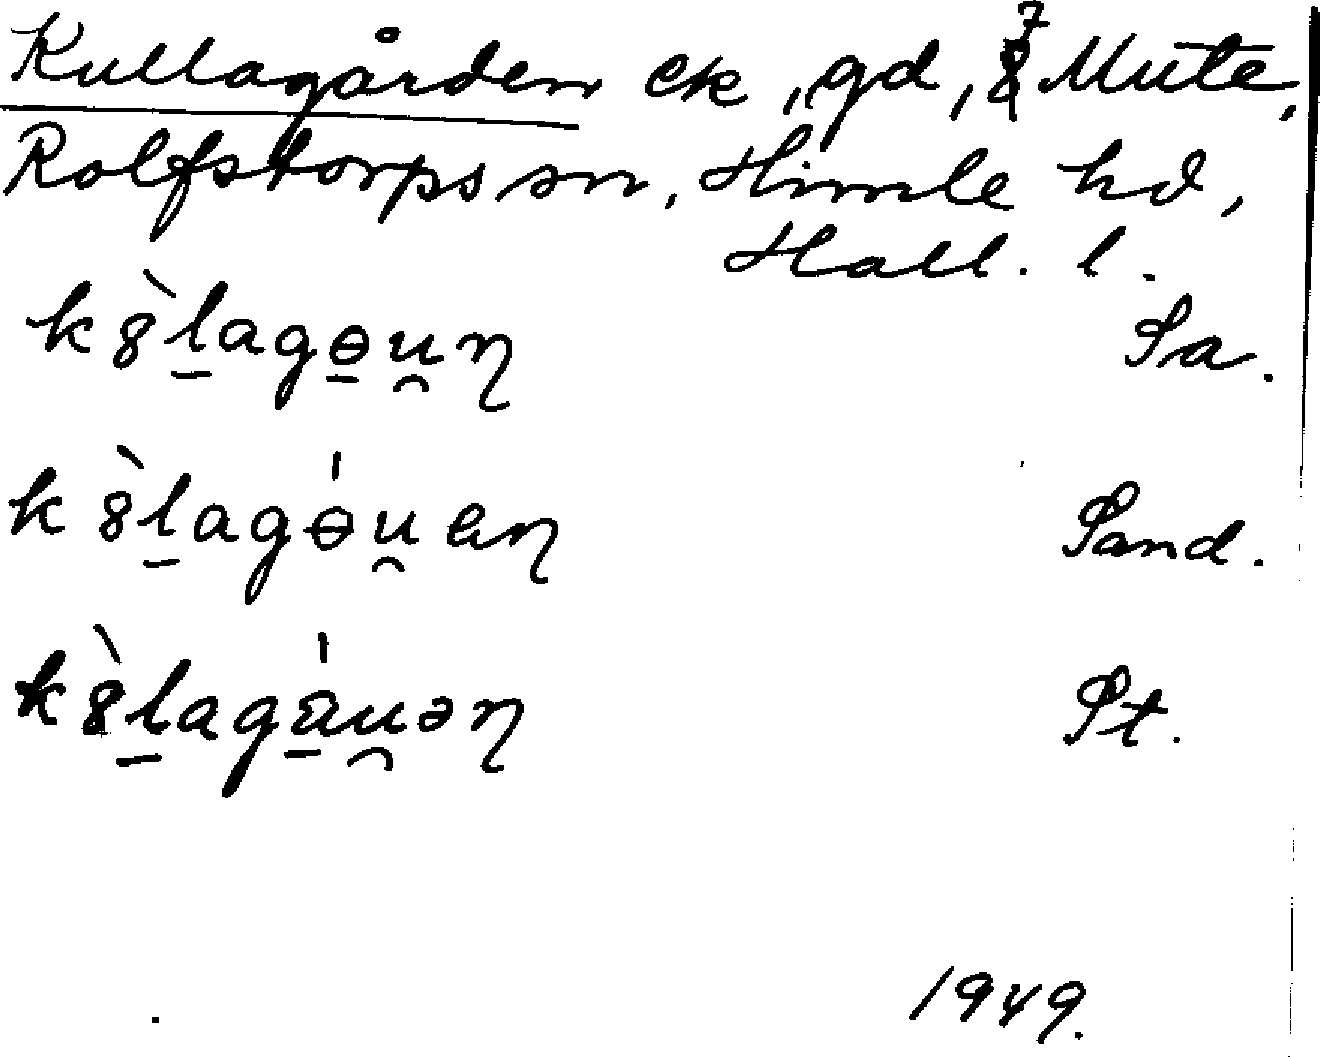 Kullagården ek, gd, 7 Mute,
Rolfstorps sn, Himle hd,
Hall. l.
k8̀l̠agɵ̠u̯ɳ Sa.
k8̀l̠agɵ́u̯eɳ Sand.
k8̀l̠agá̠u̯əɳ St.
1949.